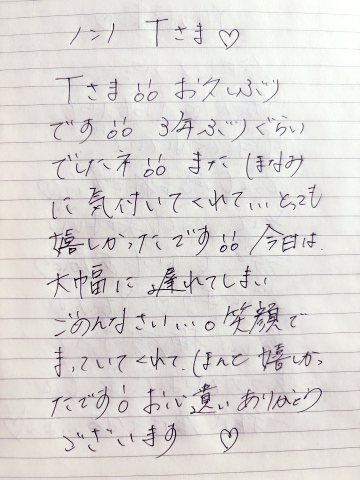 ノンノ Tさま♡
Tさま!! お久しぶり
です!! 3年ぶりぐらい
でしたネ!! また ほなみ
に気付いてくれて... とっても
嬉しかったです!! 今日は
大幅に 遅れてしまい
ごめんなさい...。 笑顔で
まっていてくれて、ほんと 嬉しかっ
たです! お心遣い ありがとう
ございます ♡